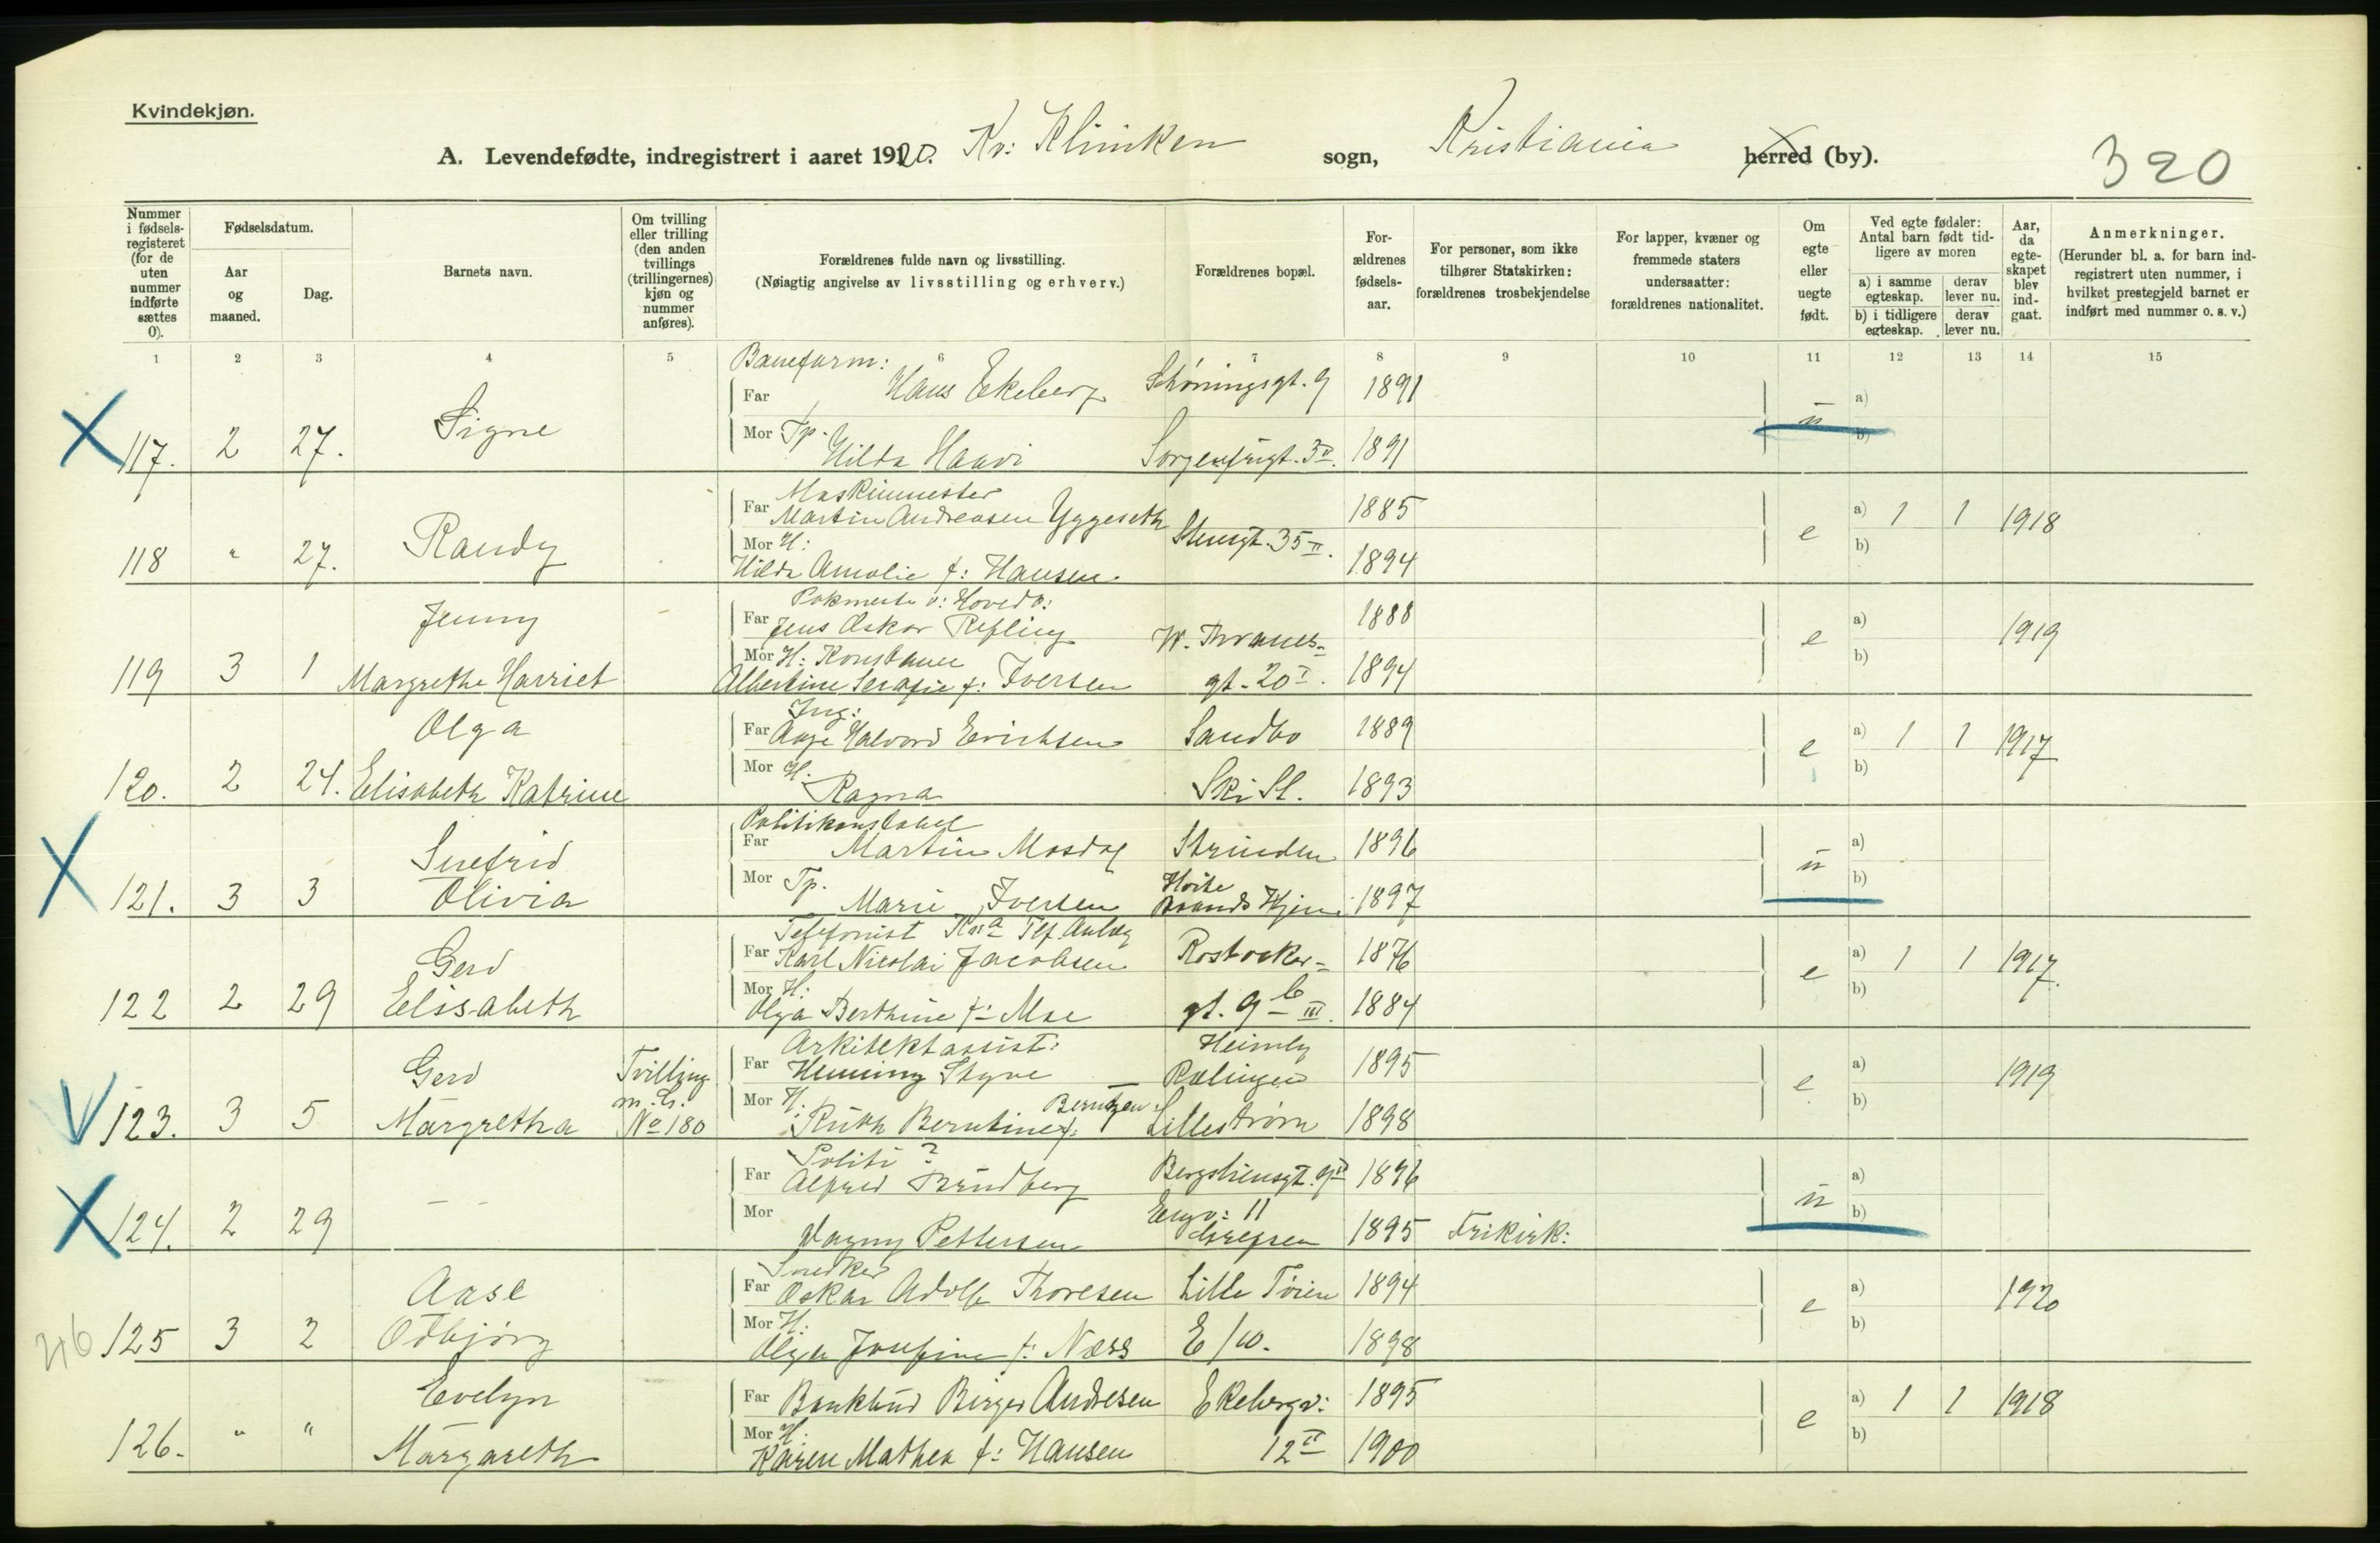 Kvindekjøn.
A. Levendefødte, indregistrert i aaret 1920. Kv: Kliniken sogn, Kristiania herred (by). 320
Nummer i fødsels-registeret (for de uten nummer indførte sættes 0).
Fødselsdatum.
Aar og maaned.
Dag.
Barnets navn.
Om tvilling eller trilling (den anden tvillings (trillingernes) kjøn og nummer anføres).
Forældrenes fulde navn og livsstilling.
(Nøiagtig angivelse av livsstilling og erhverv.)
Forældrenes bopæl.
For-ældrenes fødsels-aar.
For personer, som ikke tilhører Statskirken: forældrenes trosbekjendelse
For lapper, kvæner og fremmede staters undersaatter: forældrenes nationalitet.
Om egte eller uegte født.
Ved egte fødsler: Antal barn født tid-ligere av moren
a) i samme egteskap. derav lever nu.
b) i tidligere egteskap. derav lever nu.
Aar, da egte-skapet blev ind-gaat.
Anmerkninger.
(Herunder bl. a. for barn ind-registrert uten nummer, i hvilket prestegjeld barnet er indført med nummer o. s. v.)
1 2 3 4 5 6 7 8 9 10 11 12 13 14 15
Baneform:
Far Hans Ekeberg Schøningsgt. 9 1891
X 117. 2 27. Signe ü a) b)
Mor Tp. Hilda Haavi Sorgenfrigt. 3 1891
Maskinmester
Far Martin Andreasen Yggeseth 1885
118 " 27. Randy Stensgt. 35 II. e a) 1 1 1918 b)
Mor H:
Hilda Amalie f: Hansen. 1894
Pakmester v: Hovedb:
Far Jens Oskar Refling W. Thranes- 1888
119 3 1 Jenny Margrethe Harriet e a) b) 1919
Mor H: Konstance
Albertine Serafie f: Iversen gt. 20 I. 1894
Ing:
Far Aage Halvord Erichsen Sandbo 1889
120. 2 24. Olga Elisabeth Katrine e a) 1 1 1917 b)
Mor H. Ragna Ski St. 1893
Politikonstabel
Far Martin Mosdag Strinden 1896
X 121. 3 3 Snefrid Olivia ü a) b)
Mor Tp. Marie Iversen Hvite Baands Hjem. 1897
Telefonist Kr.a Tlf. Anlæg
Far Karl Nicolai Jacobsen Rostocker- 1876
122 2 29 Gerd Elisabeth e a) 1 1 1917. b)
Mor H:
Olga Berthine f: Moe gt. 9 b III. 1884
Arkitektassist: Heimly
Far Henning Styve Rælingen 1895
V 123. 3 5 Gerd Margretha Tvilling m. G. No 180 e a) b) 1919
Mor H: Ruth Berntine f: Berntzen Lillestrøm 1898
Politi ?
Far Alfred Brudberg Bergstiensgt. 9 1896
X 124. 2 29 — — ü a) b)
Mor Vagny Pettersen Engv: 11 Grefsen 1895 Frikirk:
Snedker
Far Oskar Adolf Thoresen Lille Tøien 1894
125 3 2 Aase Odbjørg e a) b) 1920
Mor H: Olga Josefine f: Næss E/10. 1898
Far Bankbud Birger Andresen Ekebergv: 1895
126. " " Evelyn Margareth e a) 1 1 1918 b)
Mor H:
Karen Mathea f: Hansen 12 II 1900